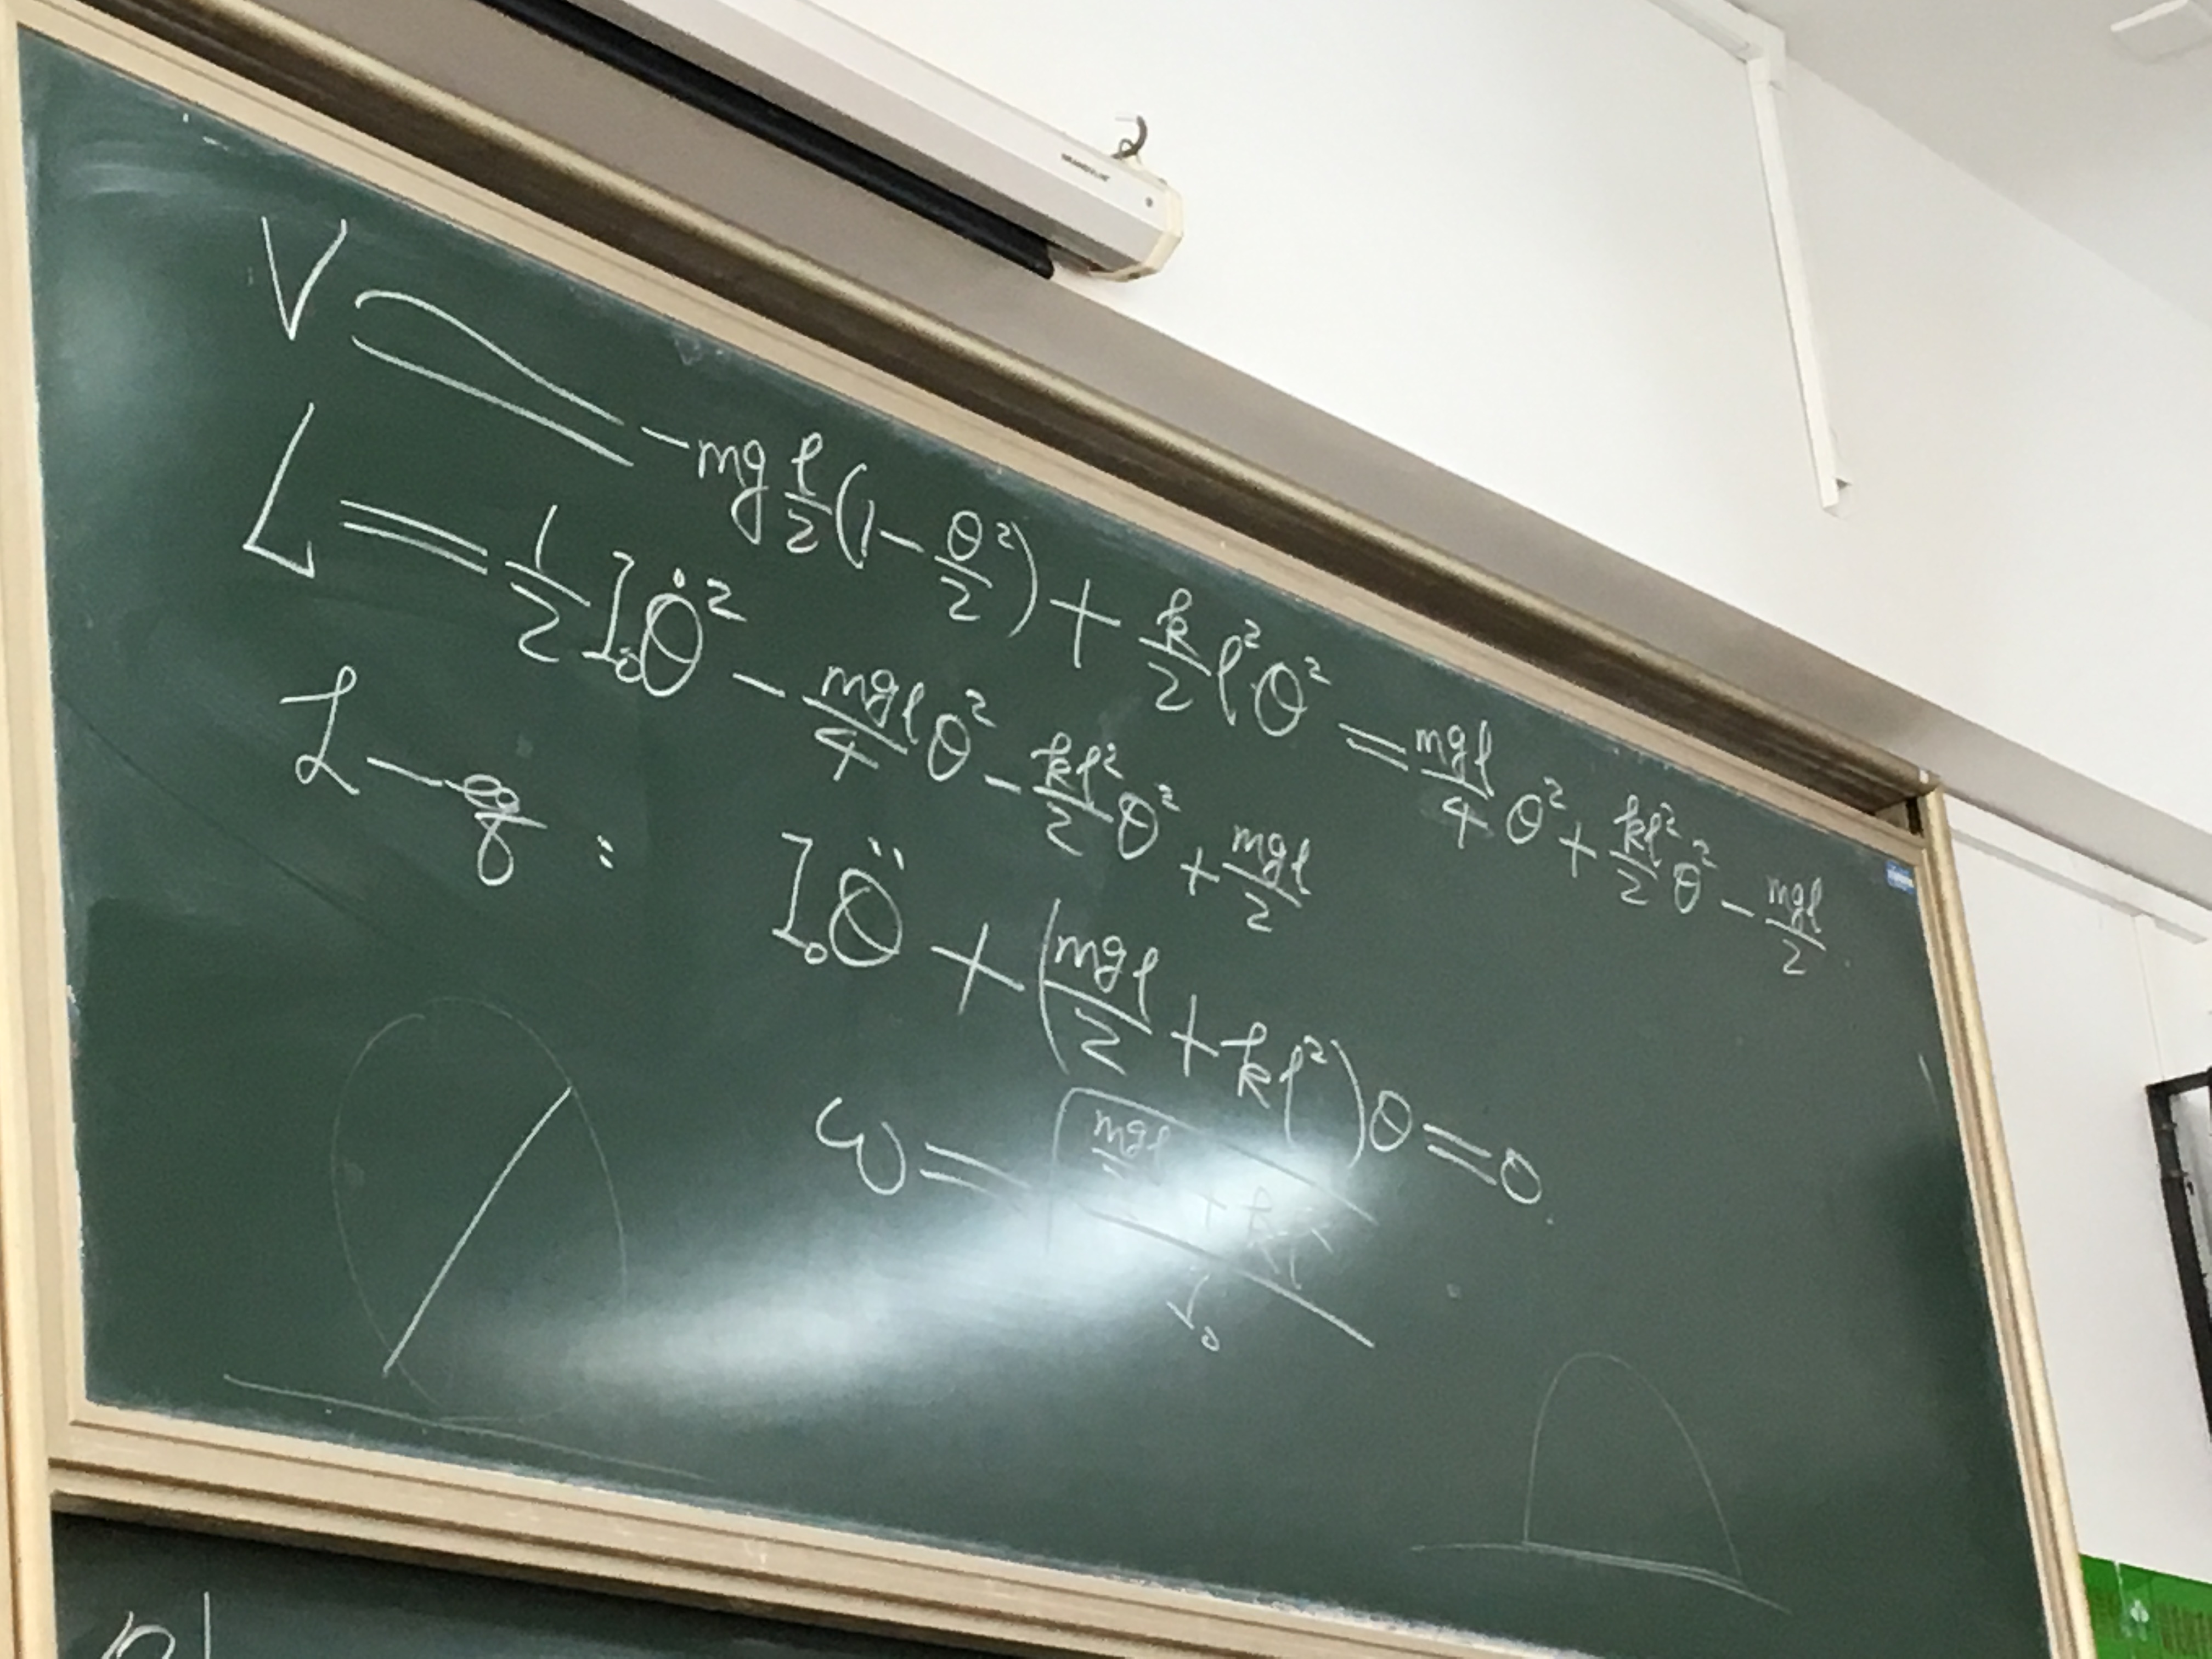 V = -mg l/2 (1 - θ²/2) + k/2 l²θ² = mgl/4 θ² + kl²/2 θ² - mgl/2
L = 1/2 I₀θ̇² - mgl/4 θ² - kl²/2 θ² + mgl/2
L-eg :  I₀θ̈ + (mgl/2 + kl²)θ = 0.
ω = √((mgl/2 + kl²)/I₀)